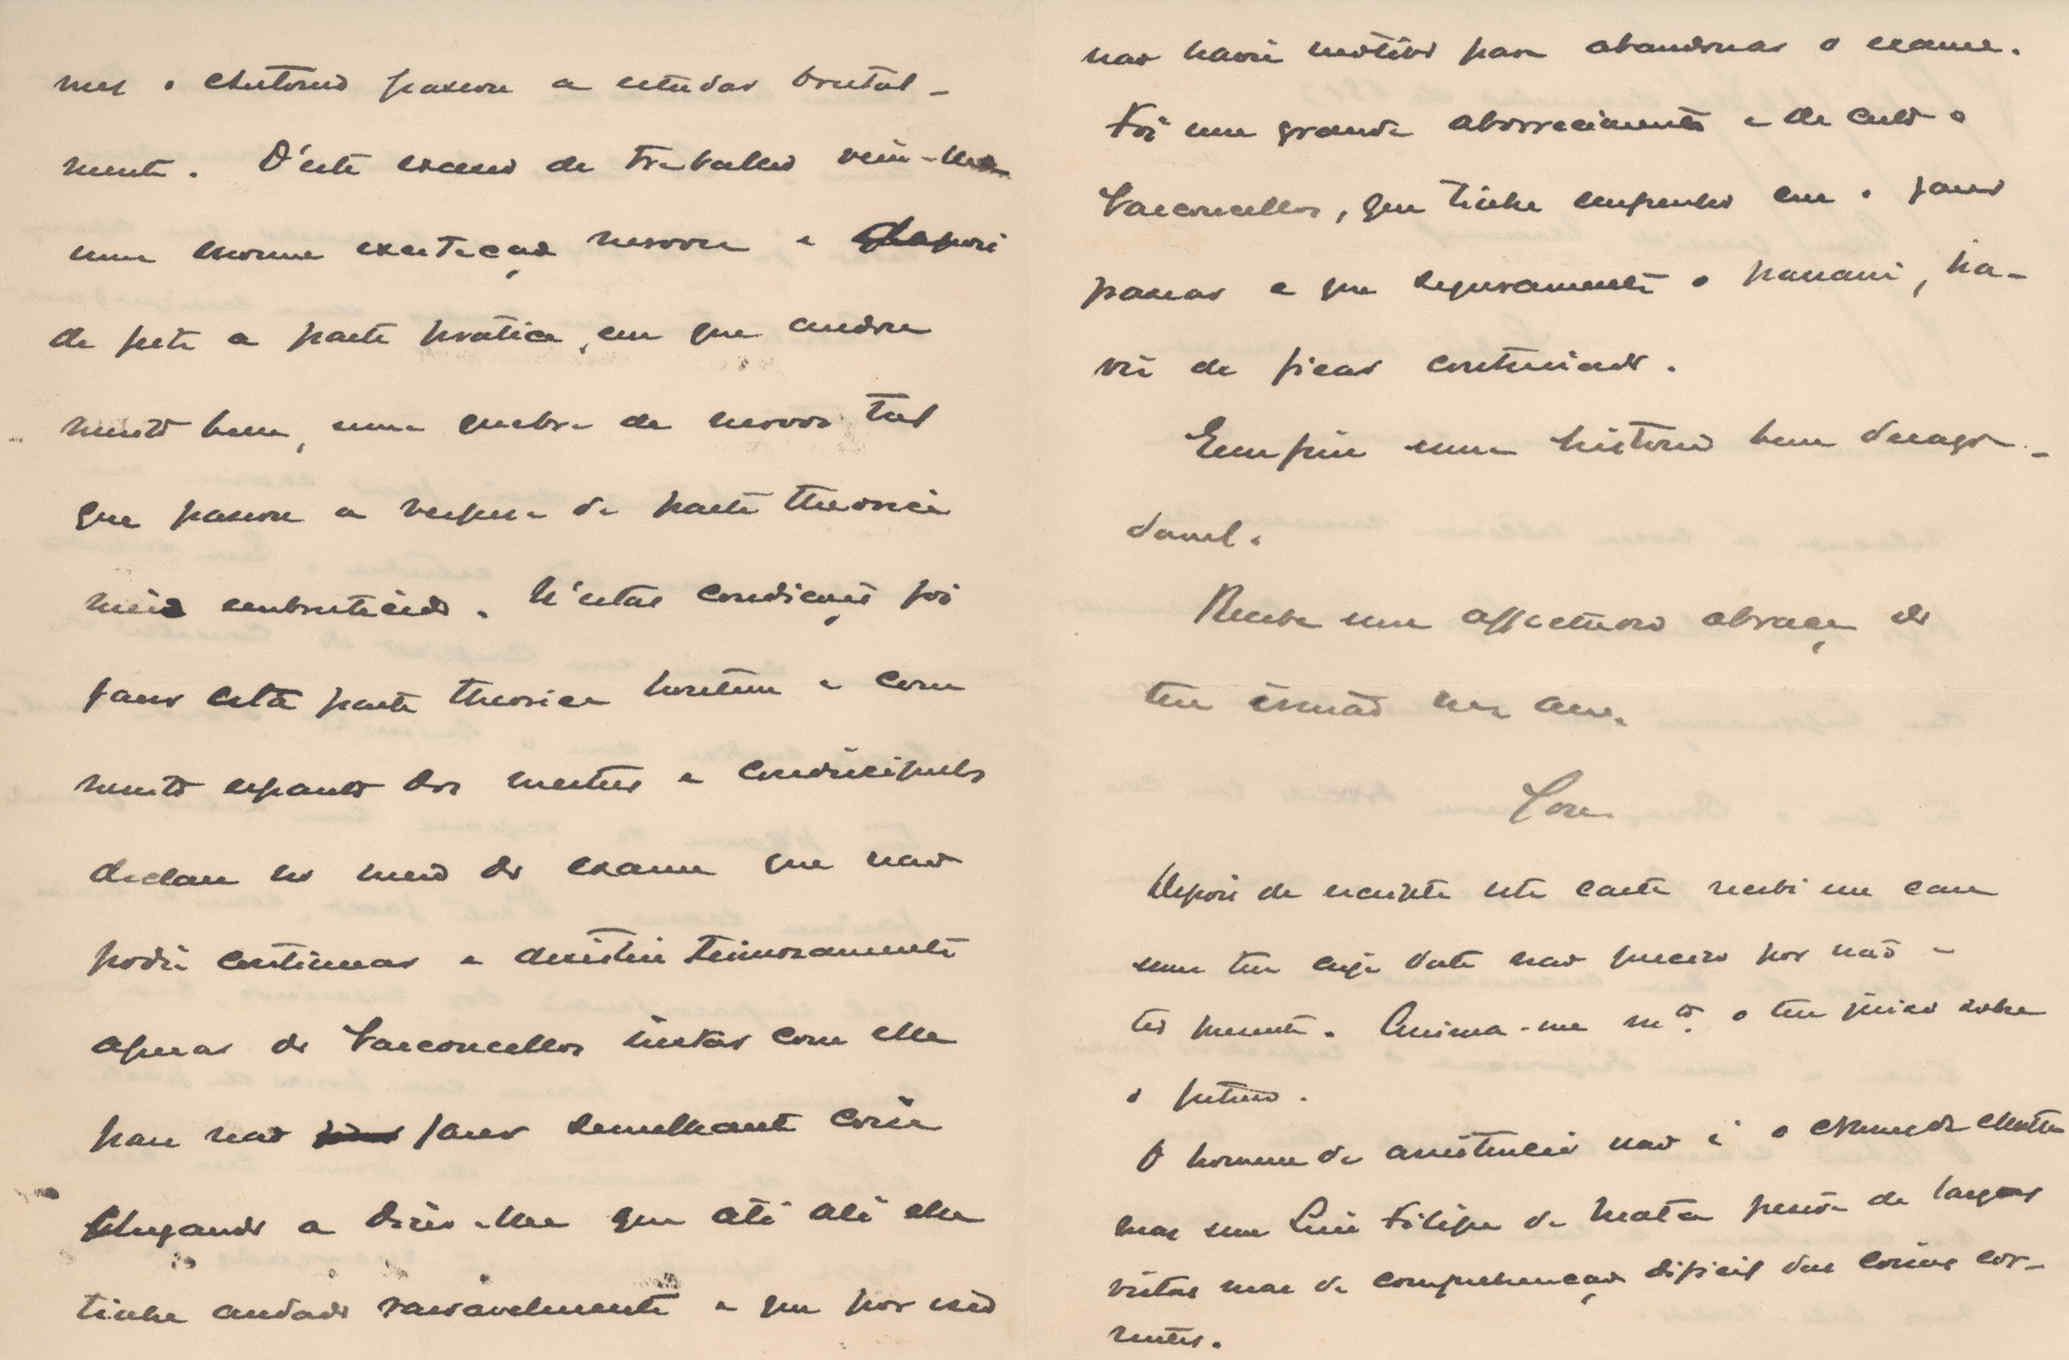 mez o Antonio passou a estudar brutal-
mente. D'este excesso de trabalho veiu-lhe
uma enorme exciteção nervosa e depois
de feita a parte pratica, em que andou
muito bem, uma quebra de nervos tal
que passou a vespera da parte theorica
meio embrutecido. N'estas condições foi
fazer esta parte theorica hontem e com
muito espanto dos mestres e condiscipulos
declara no meio do exame que não
podia continuar e desistiu teimosamente
apezar do Vasconcellos instar com elle
para não fazer semelhante coisa
chegando a dizer-lhe que até ali elle
tinha andado rasoavelmente e que por isso
não havia motivo para abandonar o exame.
Foi um grande aborrecimento e de certo o
Vasconcellos, que tinha empenho em o fazer
passar e que seguramente o passaria, ha-
via de ficar contrariado.
Emfim uma historia bem desagra-
davel.
Recebe um affectuoso abraço do
teu irmão mto amo
José
Depois de escripta esta carta recebi um car
um teu cuja data não preciso por não o
ter presente. Anima-me mto. o teu juizo sobre
o futuro.
O homem da assistencia não é o
mas um Luiz Filipe da Mata pessoa de largas
vistas mas de comprehenção dificil das coisas cor-
rentes.